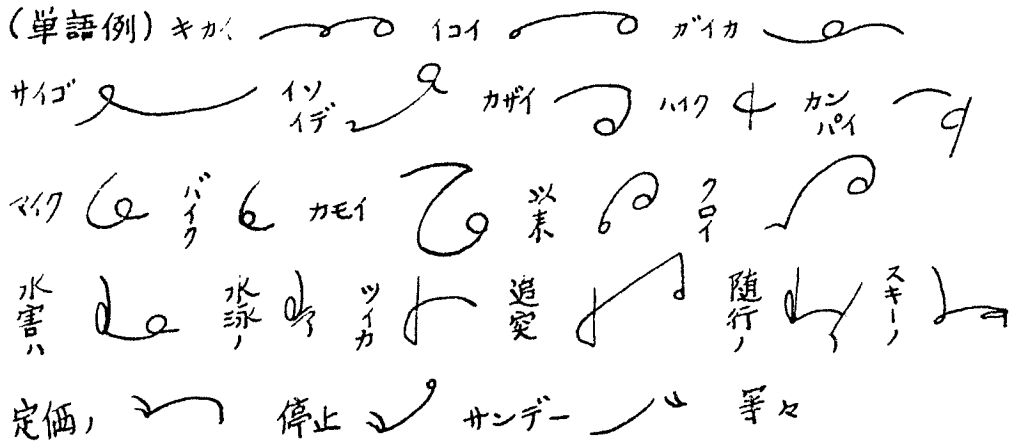 (単語例) キカイ イコイ ガイカ
サイゴ イソイデ カザイ ハイク カンパイ
マイク バイク カモイ 以来 クロイ
水害ハ 水泳ノ ツイカ 追突 随行ノ スキーノ
定価ノ 停止 サンデー 等々